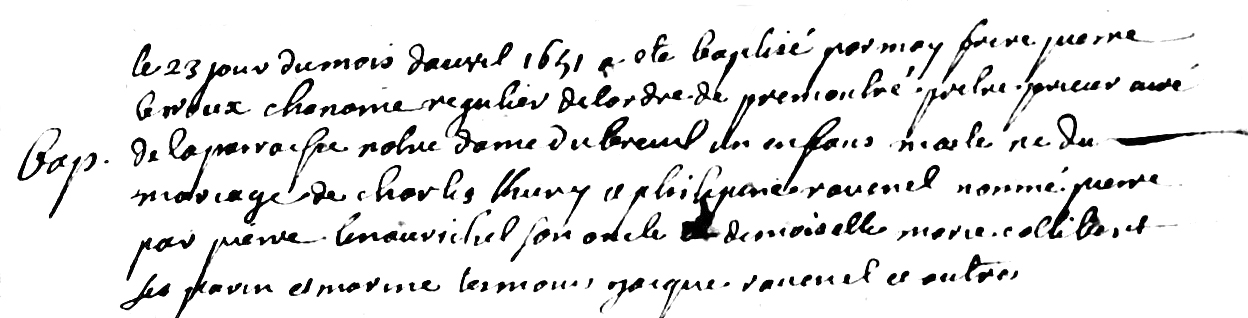 le 23 jour du mois dauvril 1651 a ete baptisé par moy frere pierre
leroux chanoine regulier de lordre de premontré pretre prieur curé
Bap. de la parroisse notre dame du breuil un enfans masle ne du
mariage de charles thury et philippine ravenel nommé pierre
par pierre son oncle demoiselle marie collibert
ses parin et marine temoins jacque ravenel et autres